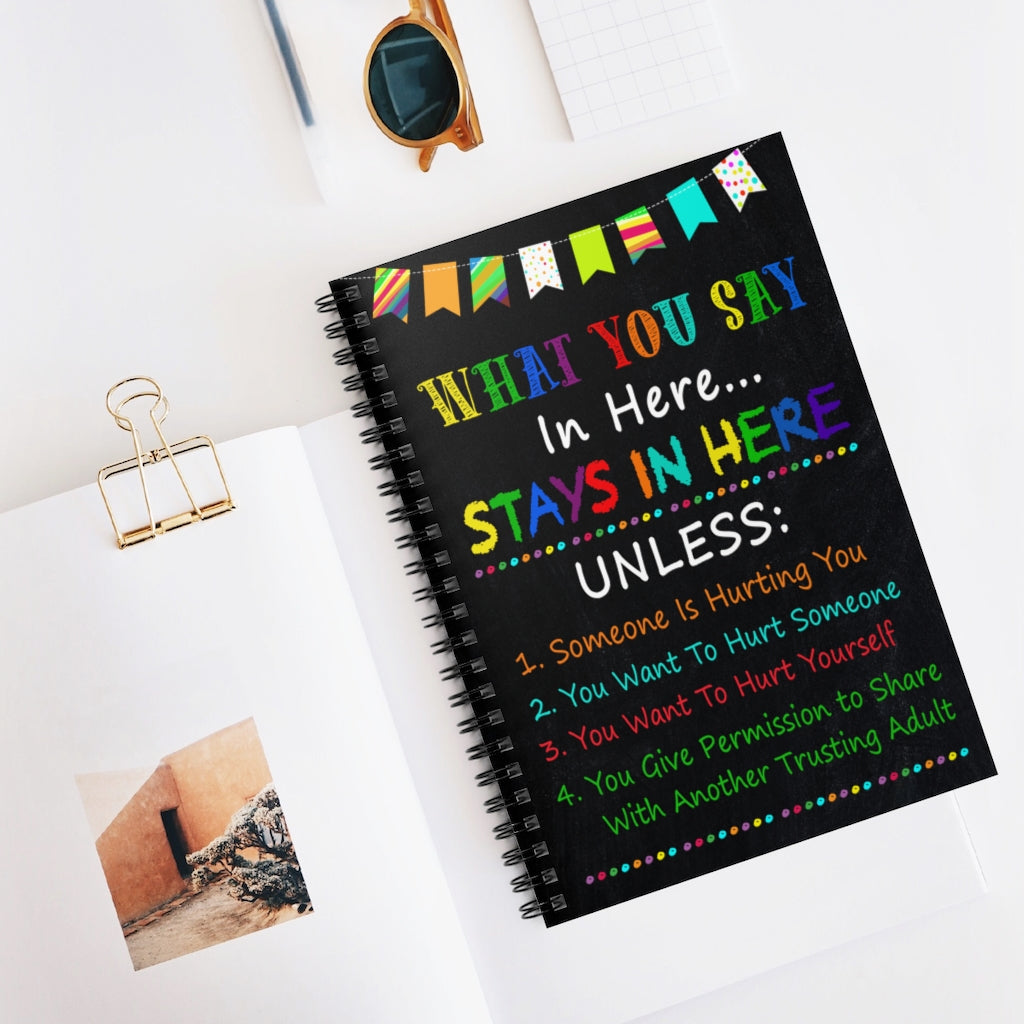 WHAT YOU SAY
In Here...
STAYS IN HERE
UNLESS:
1. Someone Is Hurting You
2. You Want To Hurt Someone
3. You Want To Hurt Yourself
4. You Give Permission to Share
With Another Trusting Adult